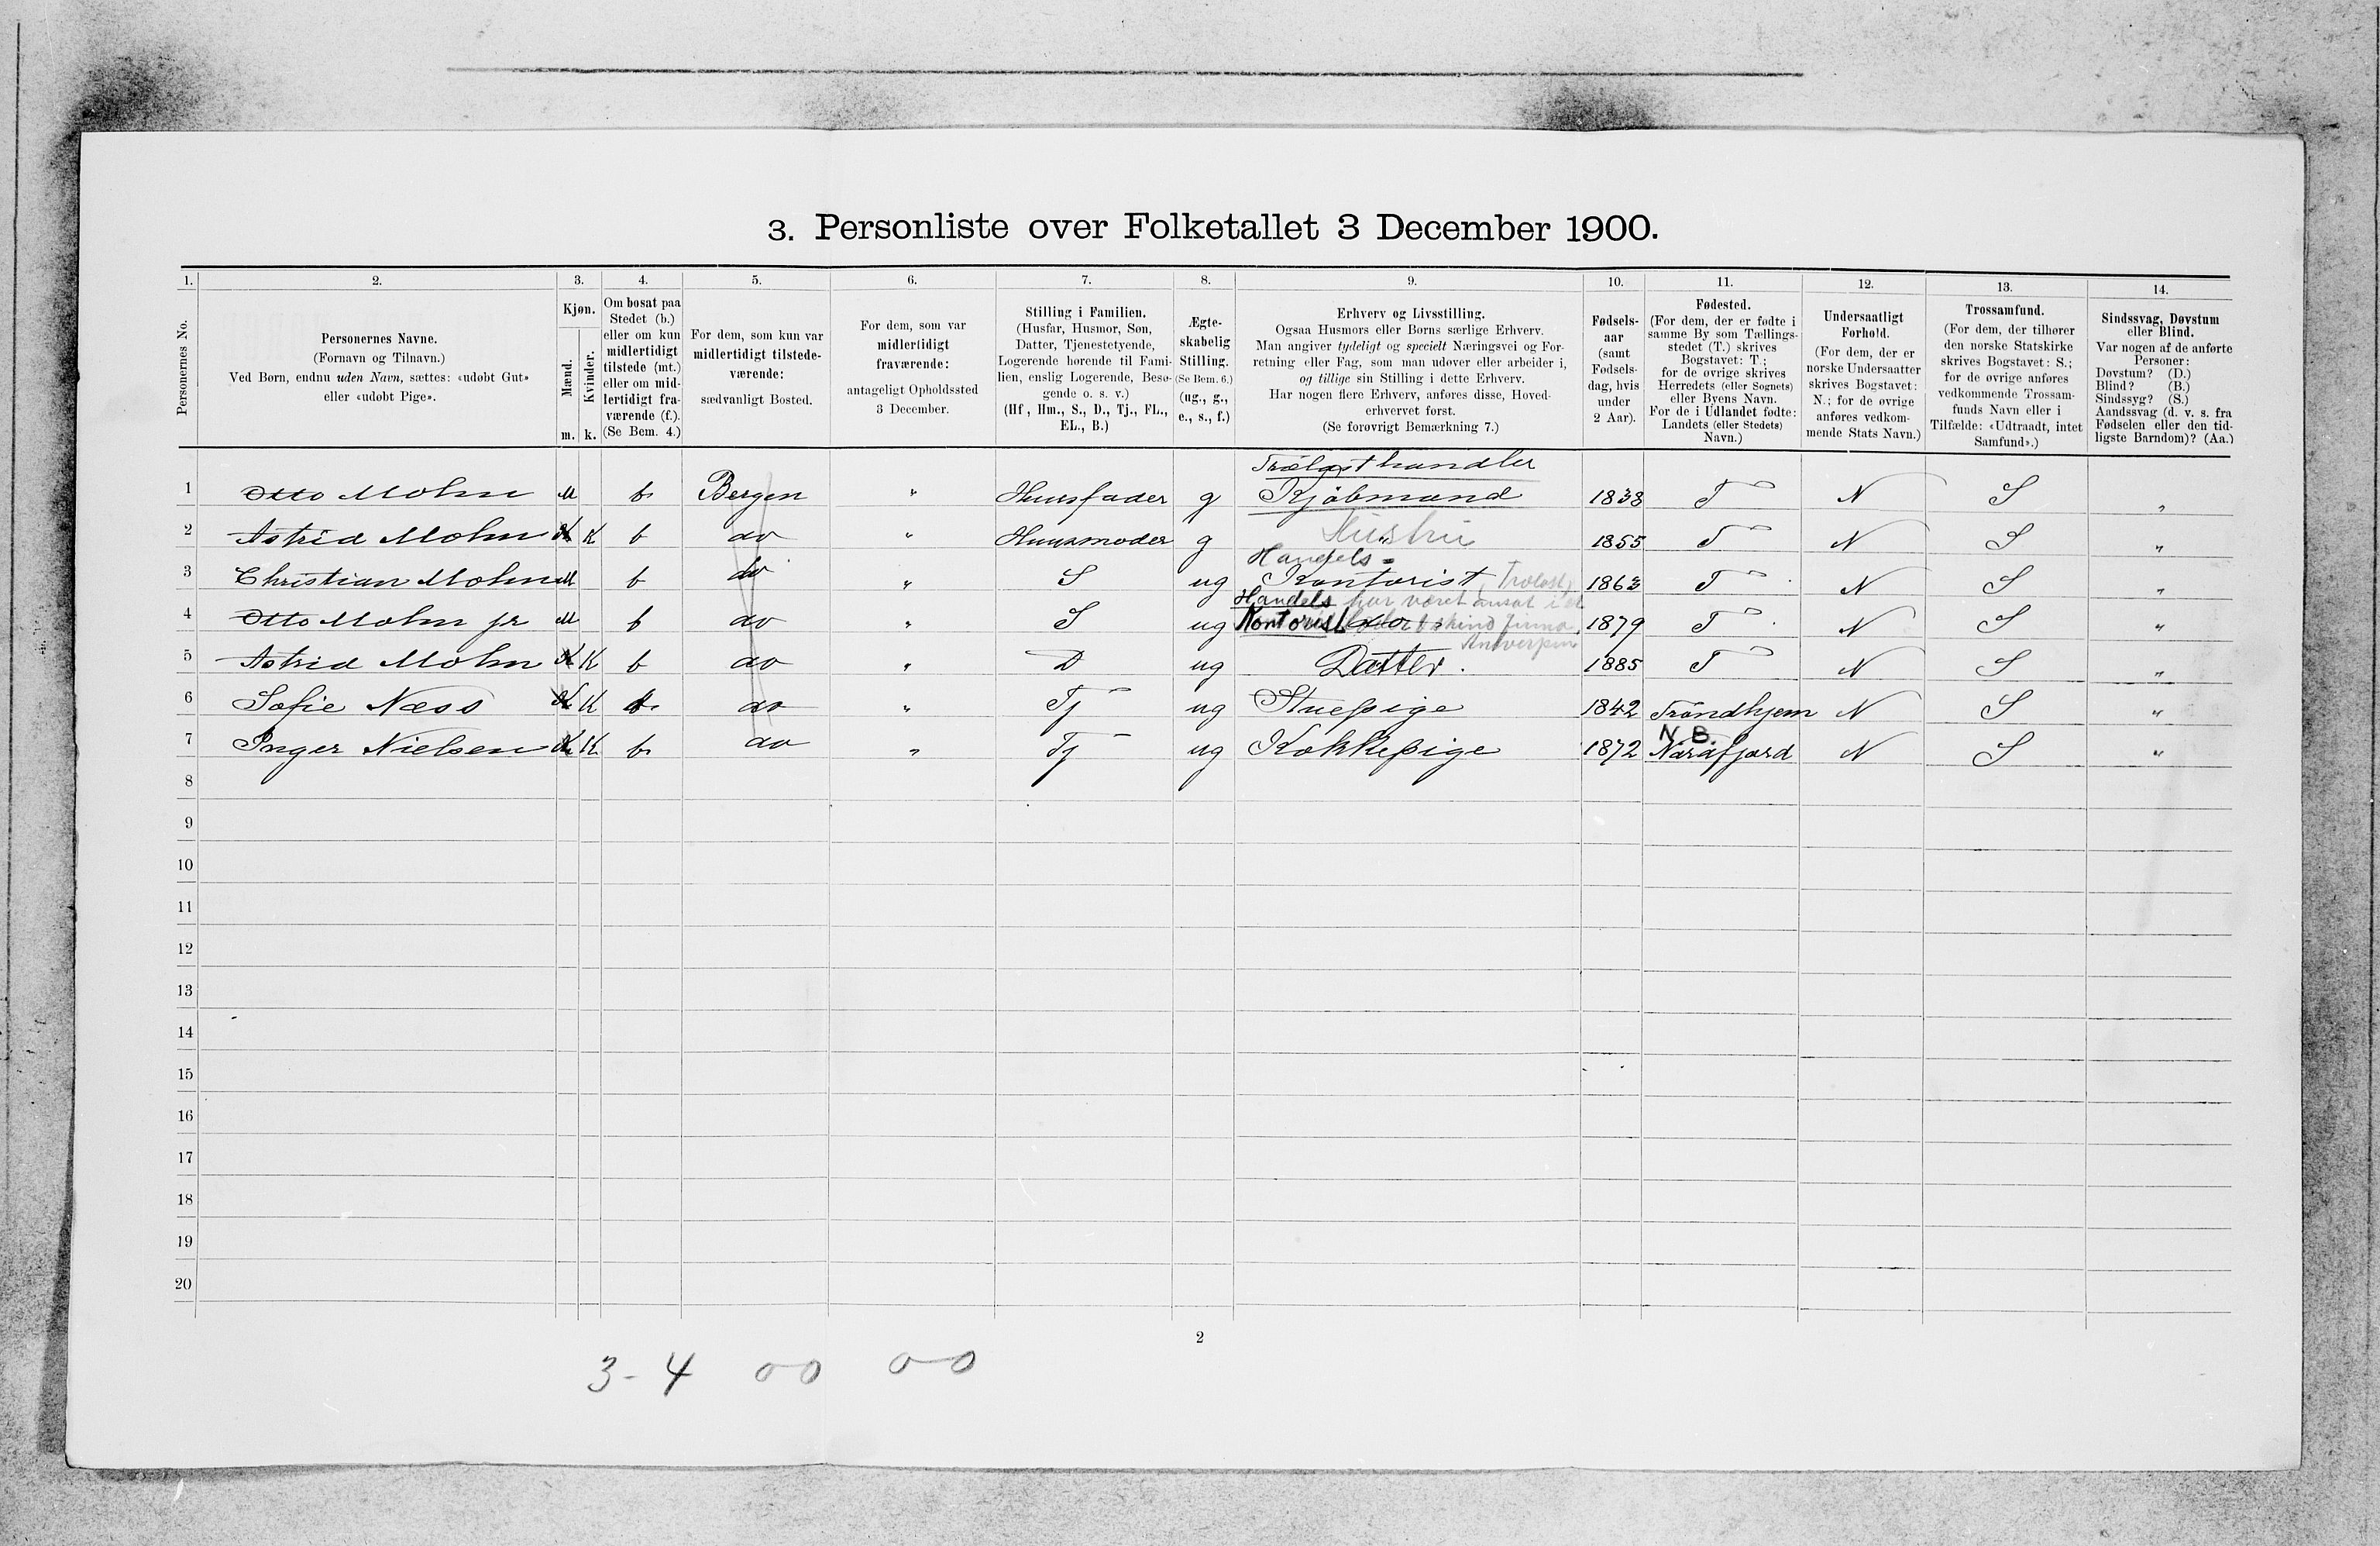 3. Personliste over Folketallet 3 December 1900.
1. 2. 3. 4. 5. 6. 7. 8. 9. 10. 11. 12. 13. 14.
Personernes No.
Personernes Navne.
(Fornavn og Tilnavn.)
Ved Børn, endnu uden Navn, sættes: «udøbt Gut»
eller «udøbt Pige».
Kjøn.
Mænd.
Kvinder.
m. k.
Om bosat paa
Stedet (b.)
eller om kun
midlertidigt
tilstede (mt.)
eller om mid-
lertidigt fra-
værende (f.).
(Se Bem. 4.)
For dem, som kun var
midlertidigt tilstede-
værende:
sædvanligt Bosted.
For dem, som var
midlertidigt
fraværende:
antageligt Opholdssted
3 December.
Stilling i Familien.
(Husfar, Husmor, Søn,
Datter, Tjenestetyende,
Logerende hørende til Fami-
lien, enslig Logerende, Besø-
gende o. s. v.)
(Hf, Hm., S., D., Tj., FL.,
EL., B.)
Ægte-
skabelig
Stilling.
(Se Bem. 6.)
(ug., g.,
e., s., f.)
Erhverv og Livsstilling.
Ogsaa Husmors eller Børns særlige Erhverv.
Man angiver tydeligt og specielt Næringsvei og For-
retning eller Fag, som man udøver eller arbeider i,
og tillige sin Stilling i dette Erhverv.
Har nogen flere Erhverv, anføres disse, Hoved-
erhvervet først.
(Se forøvrigt Bemærkning 7.)
Fødsels-
aar
(samt
Fødsels-
dag, hvis
under
2 Aar).
Fødested.
(For dem, der er fødte i
samme By som Tællings-
stedet (T.) skrives
Bogstavet: T.;
for de øvrige skrives
Herredets (eller Sognets)
eller Byens Navn.
For de i Udlandet fødte:
Landets (eller Stedets)
Navn.)
Undersaatligt
Forhold.
(For dem, der er
norske Undersaatter
skrives Bogstavet:
N.; for de øvrige
anføres vedkom-
mende Stats Navn.)
Trossamfund.
(For dem, der tilhører
den norske Statskirke
skrives Bogstavet: S.;
for de øvrige anføres
vedkommende Trossam-
funds Navn eller i
Tilfælde: «Udtraadt, intet
Samfund».)
Sindssvag, Døvstum
eller Blind.
Var nogen af de anførte
Personer:
Døvstum? (D.)
Blind? (B.)
Sindssyg? (S.)
Aandssvag (d. v. s. fra
Fødselen eller den tid-
ligste Barndom)? (Aa.)
Trælasthandler
1 Otto Mohn M b. Bergen " Huusfader g Kjøbmand 1838 T N S "
Hustru
2 Astrid Mohn K K b do " Huusmoder g " 1855 T N S "
Handels-
3 Christian Mohn M b do " S ug Kontorist Trælast 1863 T N S "
Handels har været ansat i et
4 Otto Mohn jr M b do " S ug Kontorist do firma 1879 T N S "
Antwerpen
5 Astrid Mohn K K b do " D ug Datter. 1885 T N S "
6 Sofie Næss K K b. do " Tj ug Stuepige 1842 Tröndhjem N S "
N. B.
7 Inger Nielsen K K b. do " Tj ug Kokkepige 1872 Naröfjord N S "
8
9
10
11
12
13
14
15
16
17
18
19
20
2
3-4 00 00